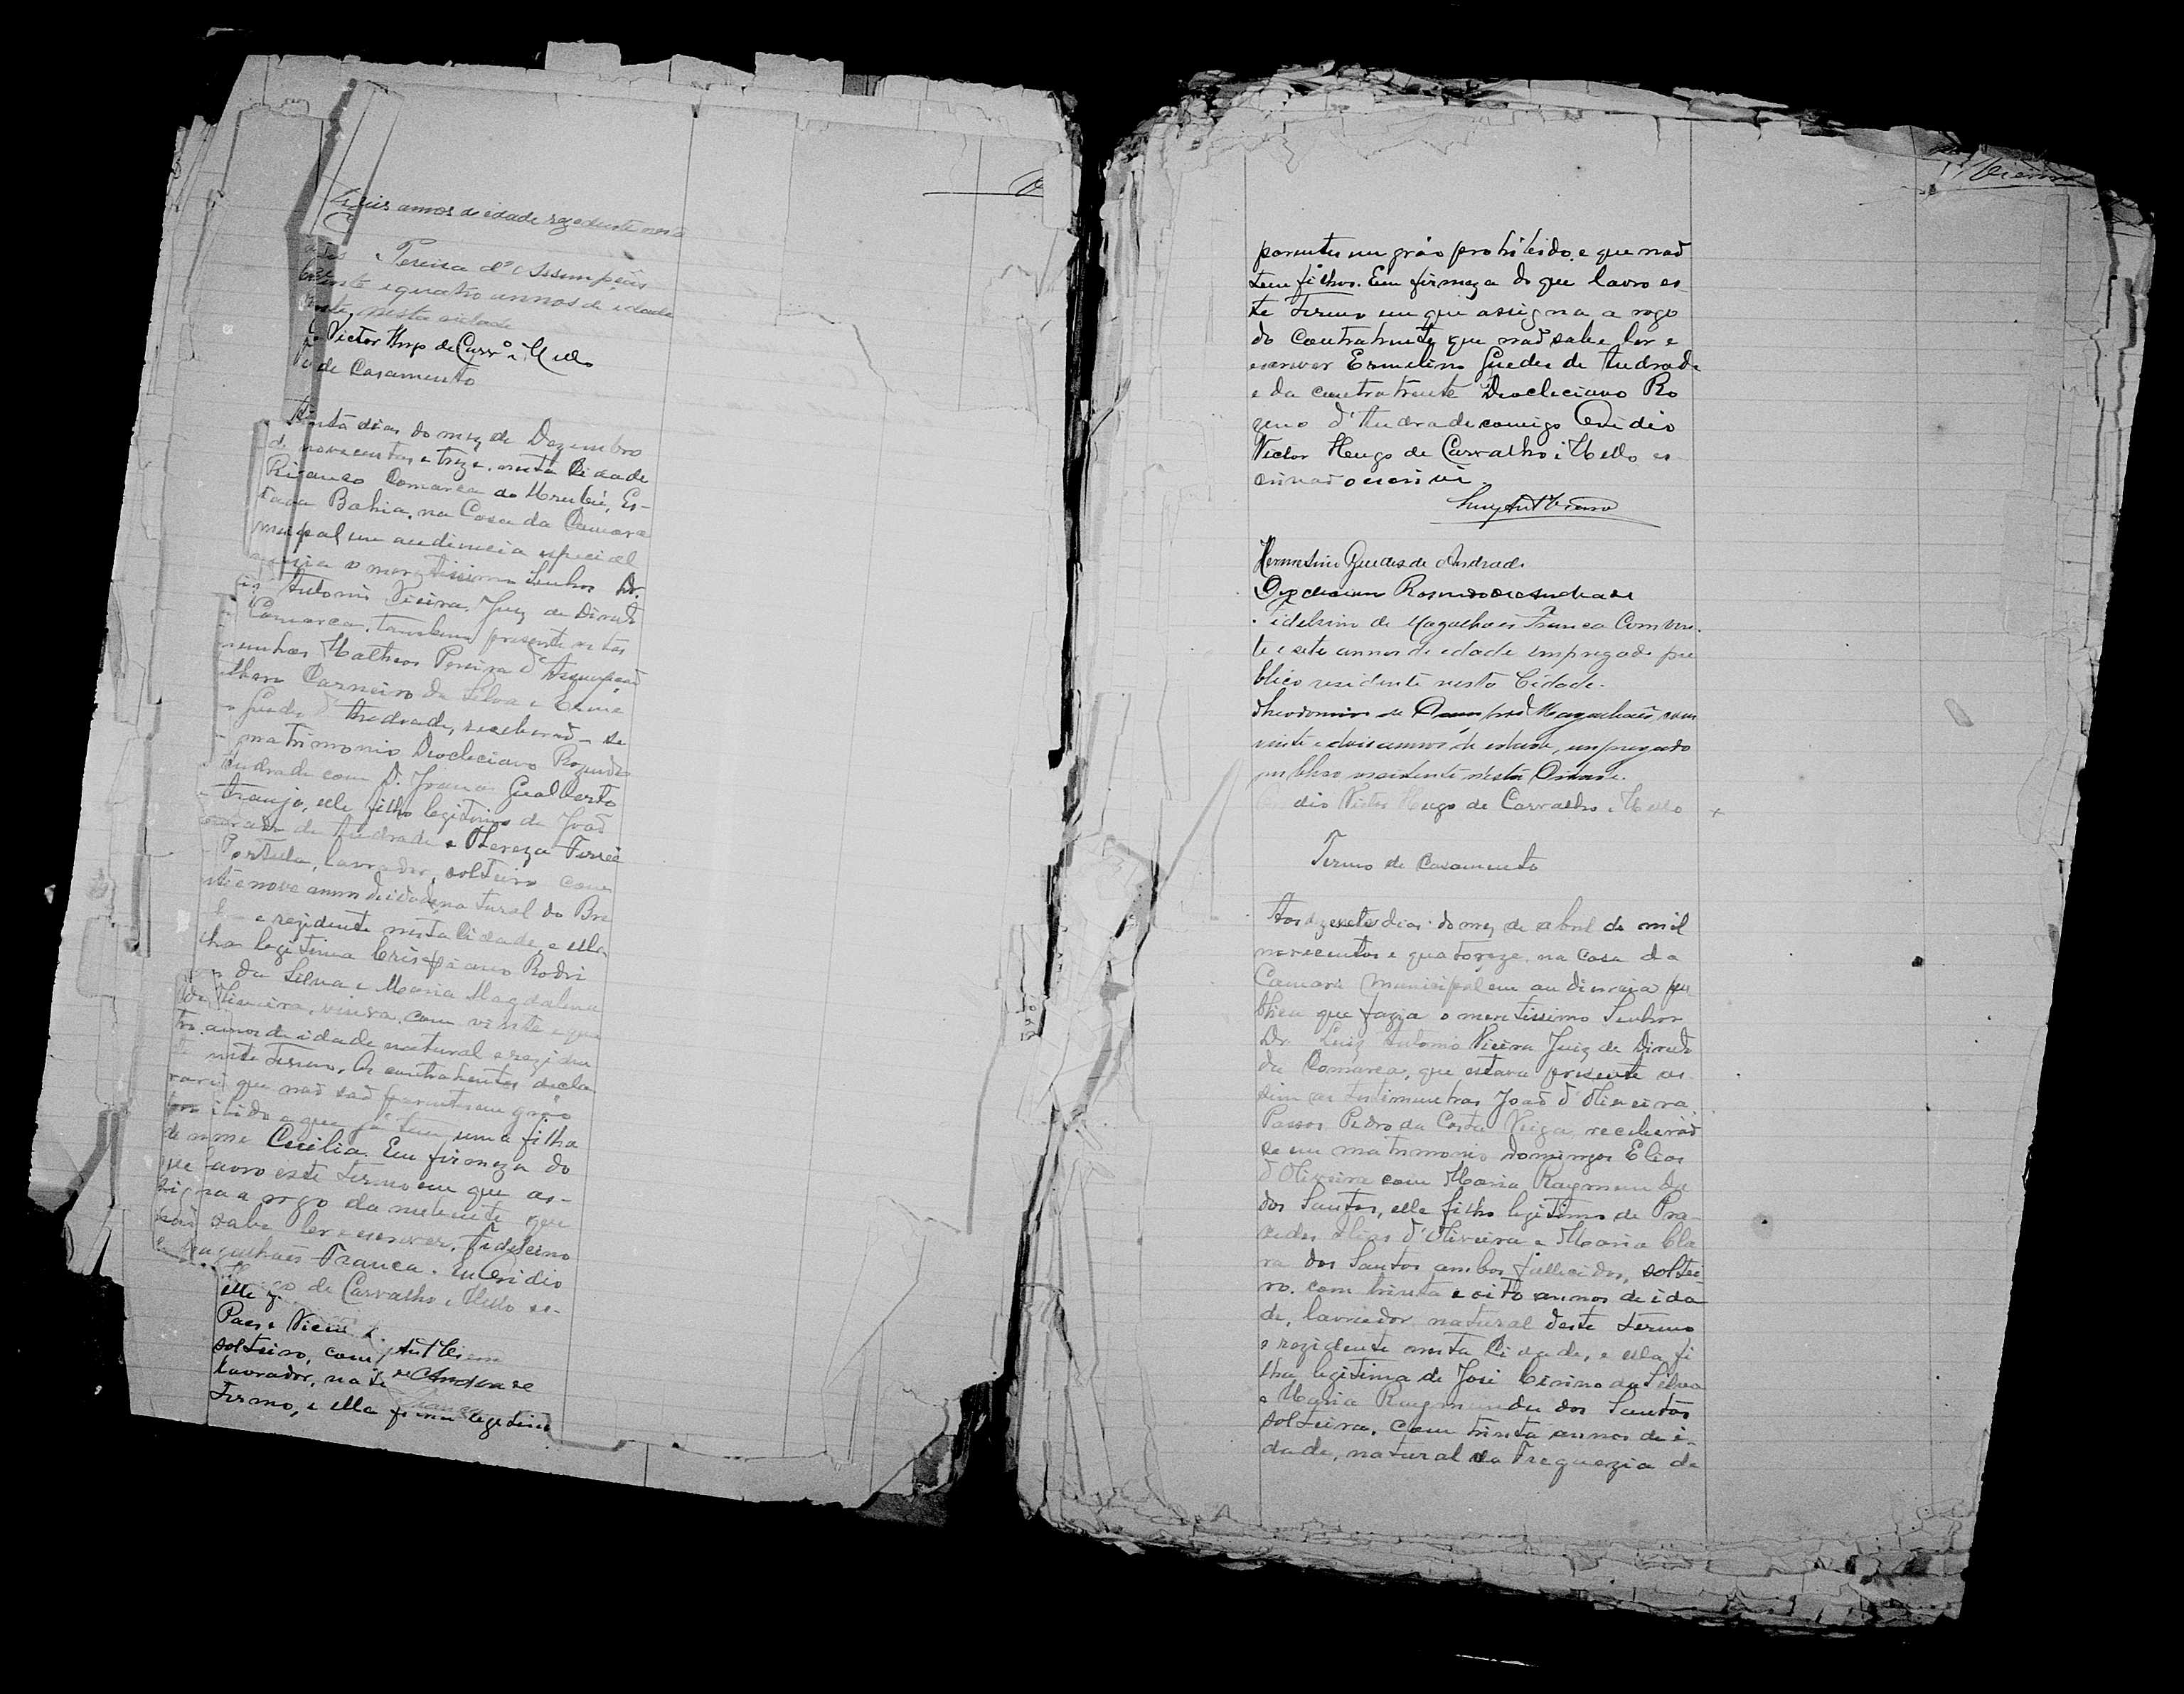 annos de idade rezidente nesta
Pereira d'Assumpção
vinte e quatro annos de idade
nesta cidade
Victor Hugo de Carv.o i Mello
de Casamento
dias do mez de Dezembro
novecentos e treze, nesta Cidade
Comarca do Urubú, Es-
Bahia, na Casa da Camara
em audiencia especial
o meretissimo Senhor Dr.
Antonio Vieira, Juiz de Direito
Comarca, tambem presente as tes
munhas Matheos Pereira d'Assumpção
Carneiro da Silva e Erme
Guedes d'Andrade, receberaõ-se
matrimonio Deocleciano Rozendo
Andrade com D. Joana Gualberto
Araujo, elle filho legitimo de Joaõ
de Andrade e Thereza Ferrei
Portela, lavrador, solteiro com
e nove annos de idade natural do Bre
e rezidente nesta Cidade, e ella
lha legitima Crispiano Rodri
da Silva e Maria Magdalena
viuva, com vinte e qua
tro annos de idade natural e reziden
te neste Termo. Os contrahentes decla
raraõ que naõ saõ parentes em gráo
e que já tem uma filha
de nome Cecilia. Em firmeza do
que lavro este termo em que as-
signa a rogo da nubente que
naõ sabe ler e escrever, Fidelcino
Magalhães Franca. Eu Ovidio
Hugo de Carvalho i Mello es-
elle
Paes e Vieira
solteiro, com Ant Vieira
lavrador, nat de Andrade
Termo, e ella filha legitima
Vieira
parentes em gráo prohibido e que naõ
tem filhos. Em firmeza do que lavro es
te termo em que assigna a rogo
do contrahente que naõ sabe ler e
escrever Ermelino Guedes de Andrade
e da contratrente Deocleciano Ro
zeno d'Andrade comigo Ovidio
Victor Hugo de Carvalho i Mello es
crivaõ o escrivi.
Luiz Ant Vieira
Hermelino Guedes de Andrade
Deocleciano Rosendo de Andrade
Fidelsino de Magalhães Franca Com vin
te e sete annos de edade empregado pu
blico residente nesta Cidade.
Theodomiro de Magalhães com
vinte e dois annos de edade, empregado
publico residente nesta Cidade.
dio Victor Hugo de Carvalho i Mello
Termo de Casamento
Aos dezesete dias do mez de abril de mil
novecentos e quatoreze, na casa da
Camara Municipal em audiencia pu
blica que fazia o meretissimo Senhor
Dr. Luiz Antonio Vieira Juiz de Direito
da Comarca, que estava presente as
sim as testimunhas Joaõ d'Oliveira
Passos Pedro da Costa Veiga, receberaõ
se em matrimonio Domingos Elias
d'Oliveira com Maria Raymunda
dos Santos, elle filho legitimo de Pra
cedes Elias d'Oliveira e Maria Cla
ra dos Santos ambos fallecidos, soltei
ro, com trinta e oito annos de ida
de, lavrador natural deste termo
e rezidente nesta Cidade, e ella fi
lha legitima de José Cirino da Silva
e Maria Raymunda dos Santos
solteira, com trinta annos de i-
dade, natural da Freguezia de